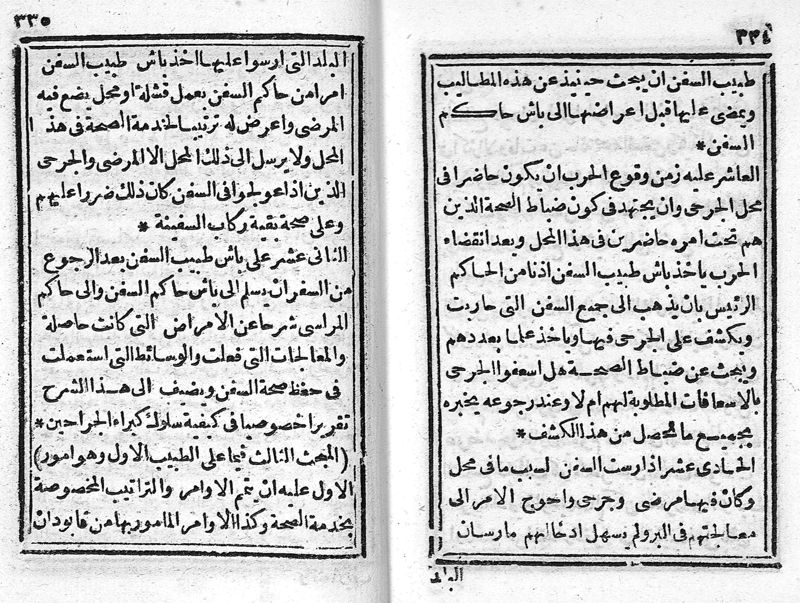 ٣٣٤
طبيب السفن ان يبحث حينئذ عن هذه المطاليب
ويمضى عليها قبل اعراضها الى باش حاكم
السفن *
العاشر عليه زمن وقوع الحرب ان يكون حاضرا فى
محل الجرحى وان يجتهد فى كون ضباط الصحة الذين
هم تحت امره حاضرين فى هذا المحل وبعد انقضاء
الحرب ياخذ باش طبيب السفن اذنا من الحاكم
الرئيس بان يذهب الى جميع السفن التى حاربت
ويكشف على الجرحى فيها وياخذ علما بعددهم
ويبحث عن ضباط الصحة هل اسعفوا الجرحى
بالاسعافات المطلوبة لهم ام لا وعند رجوعه يخبره
بجميع ما تحصل من هذا الكشف *
الحادى عشر اذا رست السفن لسبب ما فى محل
وكان فيها مرضى وجرحى واحوج الامر الى
معالجتهم فى البر ولم يسهل ادخالهم مارستان
البلد
٣٣٥
البلد التى ارسوا عليها اخذ باش طبيب السفن
امرا من حاكم السفن بعمل قشلة او محل يضع فيه
المرضى واعرض له ترتيبا لخدمة الصحة فى هذا
المحل ولا يرسل الى ذلك المحل الا المرضى والجرحى
الذين اذا عولجوا فى السفن كان ذلك ضررا عليهم
وعلى صحة بقية ركاب السفينة *
الثانى عشر على باش طبيب السفن بعد الرجوع
من السفر ان يسلم الى باش حاكم السفن والى حاكم
المراسى شرحا عن الامراض التى كانت حاصلة
والمعالجات التى فعلت والوسائط التى استعملت
فى حفظ صحة السفن ويضيف الى هذا الشرح
تقريرا خصوصيا فى كيفية سلوك كبراء الجراحين *
(المبحث الثالث فيما على الطبيب الاول وهو امور)
الاول عليه ان يتم الاوامر والتراتيب المخصوصة
بخدمة الصحة وكذا الاوامر المامور بها من قابودان